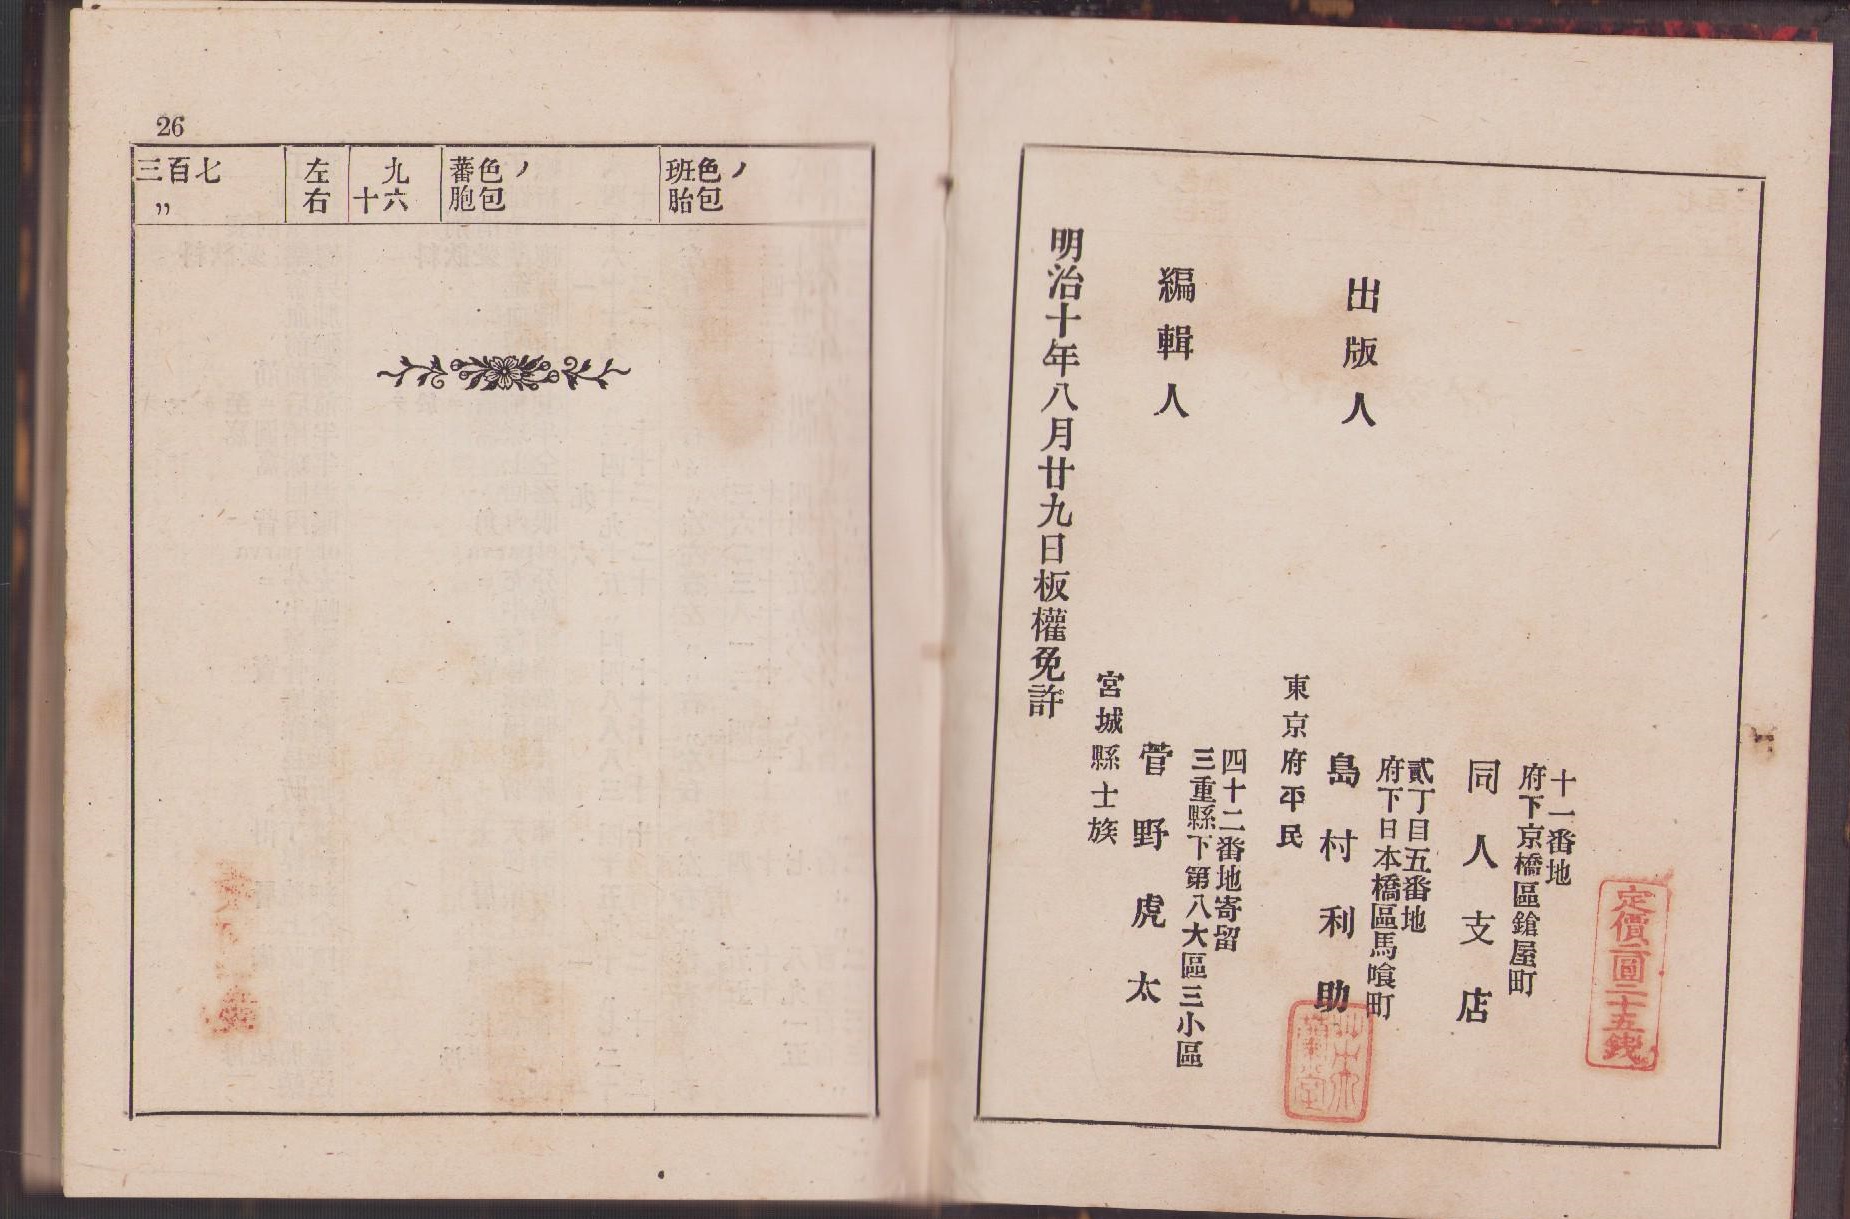 26
三百七
〃
左
右
九
十六
蕃色ノ
胞包
班色ノ
胎包
明治十年八月廿九日板權免許
編輯人
宮城縣士族
菅野虎太
三重縣下第八大區三小區
四十二番地寄留
出版人
東京府平民
島村利助
府下日本橋區馬喰町
貳丁目五番地
同人支店
府下京橋區鎗屋町
十一番地
定價二圓二十五錢